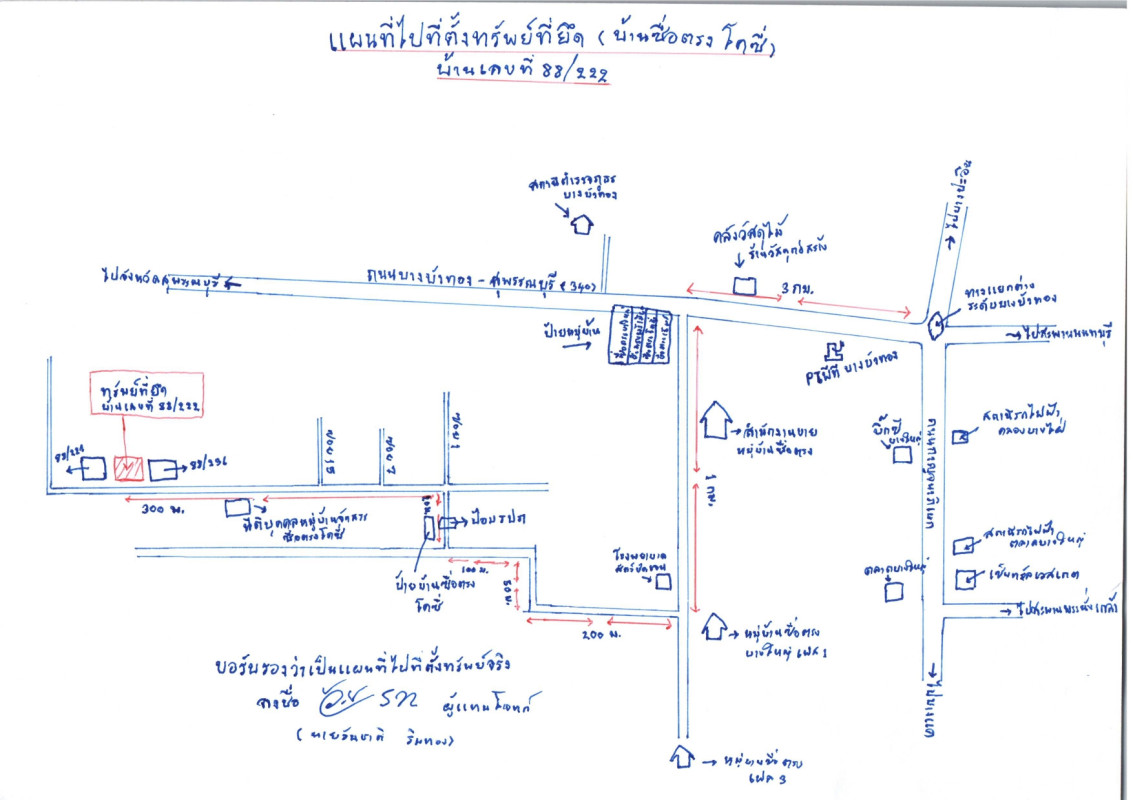 แผนที่ไปที่ตั้งทรัพย์ที่ยึด (บ้านซื่อตรง โคซี่)
บ้านเลขที่ 88/222
สถานีตำรวจภูธร
บางบัวทอง
คลังวัสดุไม้
ร้านวัสดุก่อสร้าง
ไปบางปะอิน
ไปจังหวัดสุพรรณบุรี
ถนนบางบัวทอง - สุพรรณบุรี (340)
3 กม.
ทางแยกต่าง
ระดับบางบัวทอง
ป้ายหมู่บ้าน
ไปสะพานนนทบุรี
PTพีที บางบัวทอง
ทรัพย์ที่ยึด
บ้านเลขที่ 88/222
ซอย 1
ซอย 7
ซอย 15
สำนักงานขาย
หมู่บ้านซื่อตรง
บิ๊กซี
บางใหญ่
ถนนกาญจนาภิเษก
สถานีรถไฟฟ้า
คลองบางไผ่
88/221
88/236
1 กม.
300 ม.
นิติบุคคลหมู่บ้านจัดสรร
ซื่อตรงโคซี่
ป้อมรปภ
ป้ายบ้านซื่อตรง
โคซี่
100 ม.
50 ม.
200 ม.
โรงพยาบาล
ตลาดบางใหญ่
สถานีรถไฟฟ้า
ตลาดบางใหญ่
เซ็นทรัลเวสเกต
ไปสะพานพระนั่งเกล้า
หมู่บ้านซื่อตรง
บางใหญ่ เฟส 1
ไปบางแค
ขอรับรองว่าเป็นแผนที่ไปที่ตั้งทรัพย์จริง
ลงชื่อ
ผู้แทนโจทก์
หมู่บ้านซื่อตรง
เฟส 3